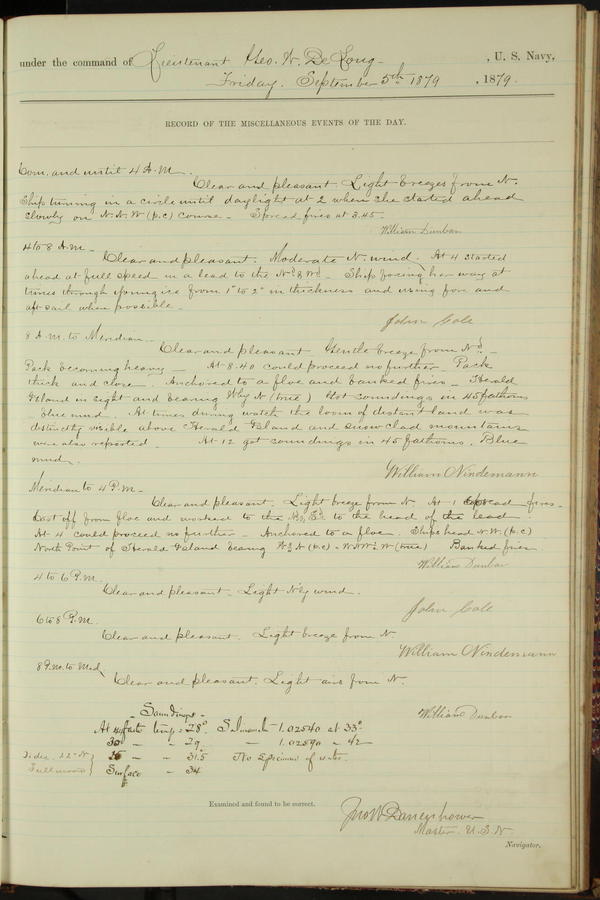 under the command of Lieutenant Geo. W. De Long , U. S. Navy,
Friday. September 5th 1879 , 1879.
RECORD OF THE MISCELLANEOUS EVENTS OF THE DAY.
Com. and until 4 A.M.
Clear and pleasant. Light breezes from N.
Ship turning in a circle until daylight at 2 when she started ahead
slowly on N.N.W (p.c) course - Spread fires at 3.45 -
William Dunbar
4 to 8 A.M -
Clear and pleasant. Moderate N. wind. At 4 started
ahead at full speed in a lead to the Nd & Wd - Ship forcing her way at
times through young ice from 1" to 2" in thickness and using fore and
aft sail when possible -
John Cole
8 A.M. to Meridian -
Clear and pleasant Gentle breeze from Nd -
Pack becoming heavy - At 8.40 could proceed no further - Pack
thick and close - Anchored to a floe and banked fires - Herald
Island in sight and bearing (true) Got soundings in 45 fathoms
blue mud. At times during watch the loom of distant land was
distinctly visible above Herald Island and snow clad mountains
were also reported. At 12 got soundings in 45 fathoms. Blue
mud.
William Nindemann
Meridian to 4 P.M -
Clear and pleasant. Light breeze from N. At 1 spread fires -
Cast off from floe and worked to the to the head of the lead
At 4 could proceed no further - Anchored to a floe. Ships head N.W. (p.c)
North Point of Herald Island bearing (p.c) - (true) Banked fires
William Dunbar
4 to 6 P.M.
Clear and pleasant - Light N'ly wind.
John Cole
6 to 8 P.M.
Clear and pleasant. Light breeze from N.
William Nindemann
8 P.M. to Mid
Clear and pleasant. Light airs from N.
William Dunbar
- Soundings -
At fath temp = 28° 1.02540 at 33°
30 - - 29 - 1.02590 - 42
- - 31.5 No Specimen of water.
Surface - 34
Full moon
Examined and found to be correct.
Jno W Danenhower
Master. U.S.N.
Navigator.